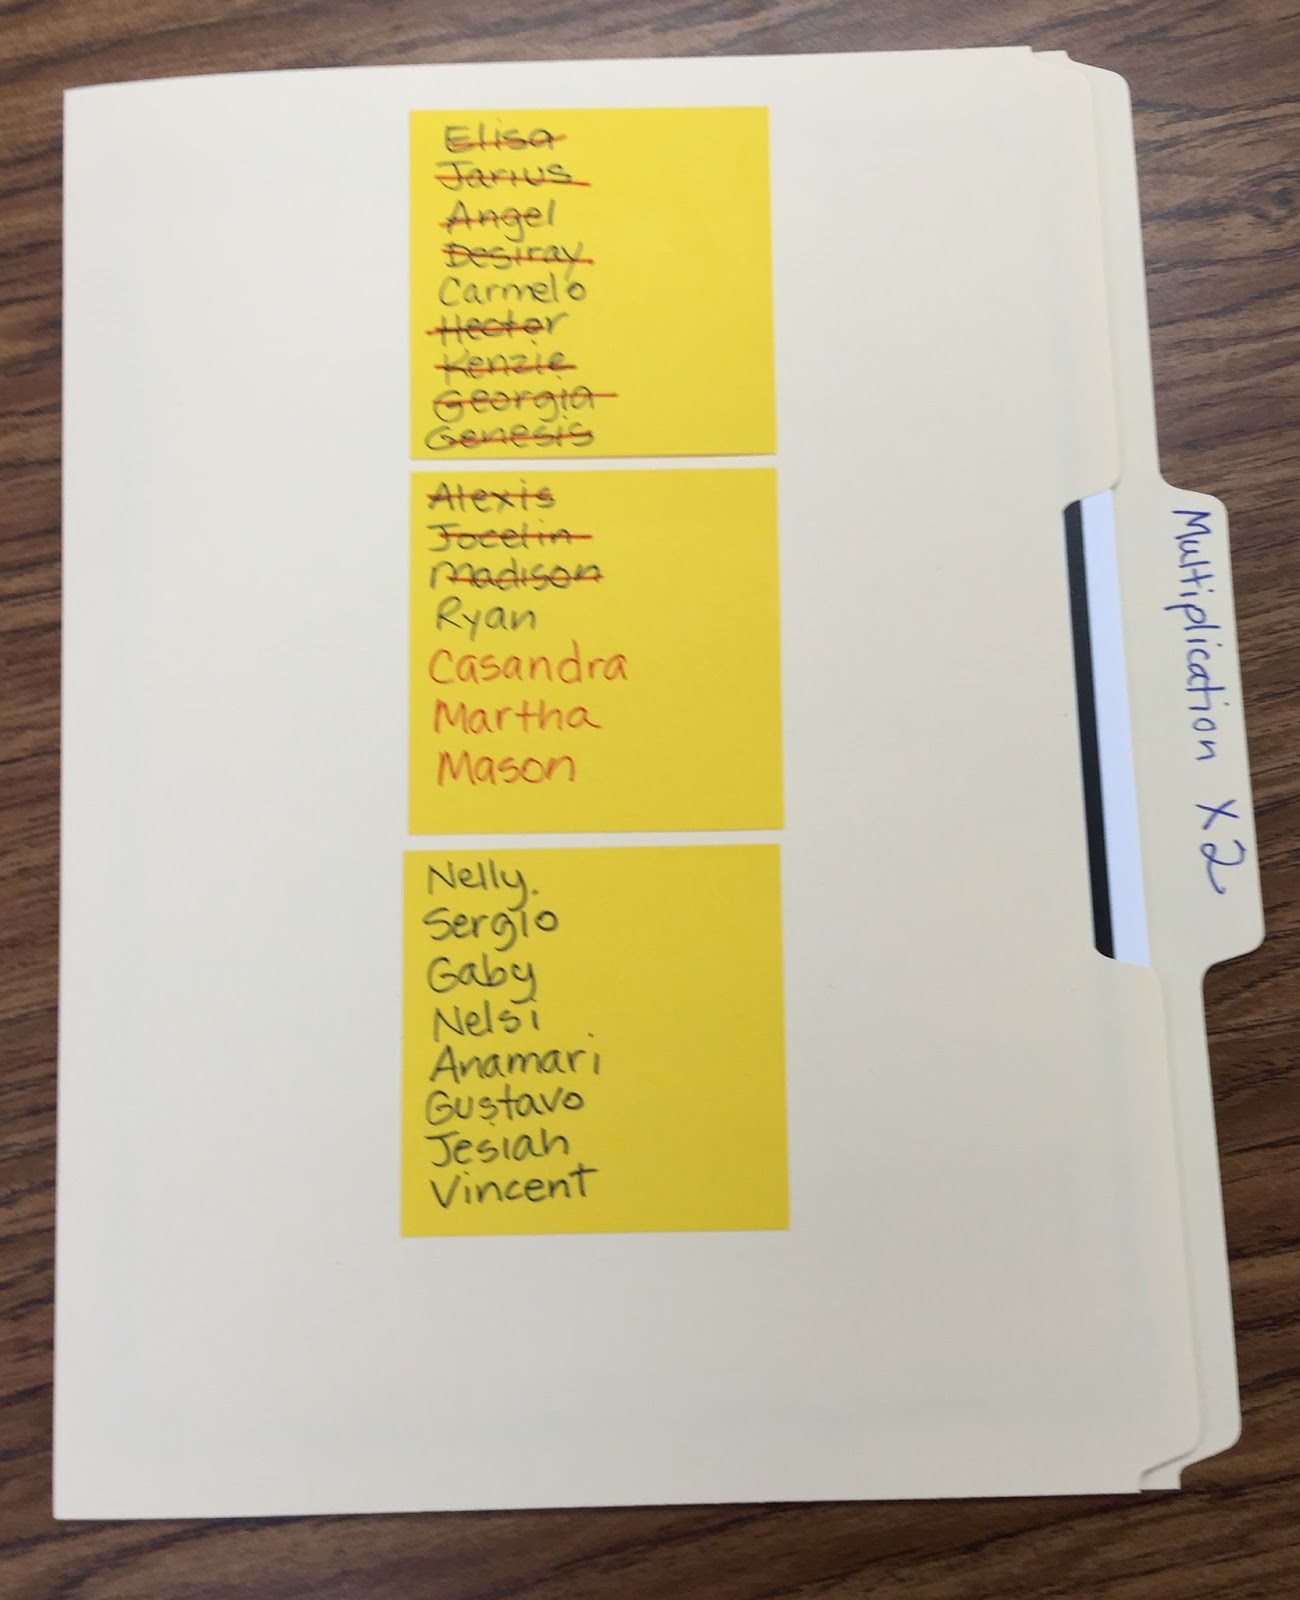 Elisa
Jarius
Angel
Desiray
Carmelo
Hector
Kenzie
Georgia
Genesis
Alexis
Jocelin
Madison
Ryan
Casandra
Martha
Mason
Nelly.
Sergio
Gaby
Nelsi
Anamari
Gustavo
Jesiah
Vincent
Multiplication x2